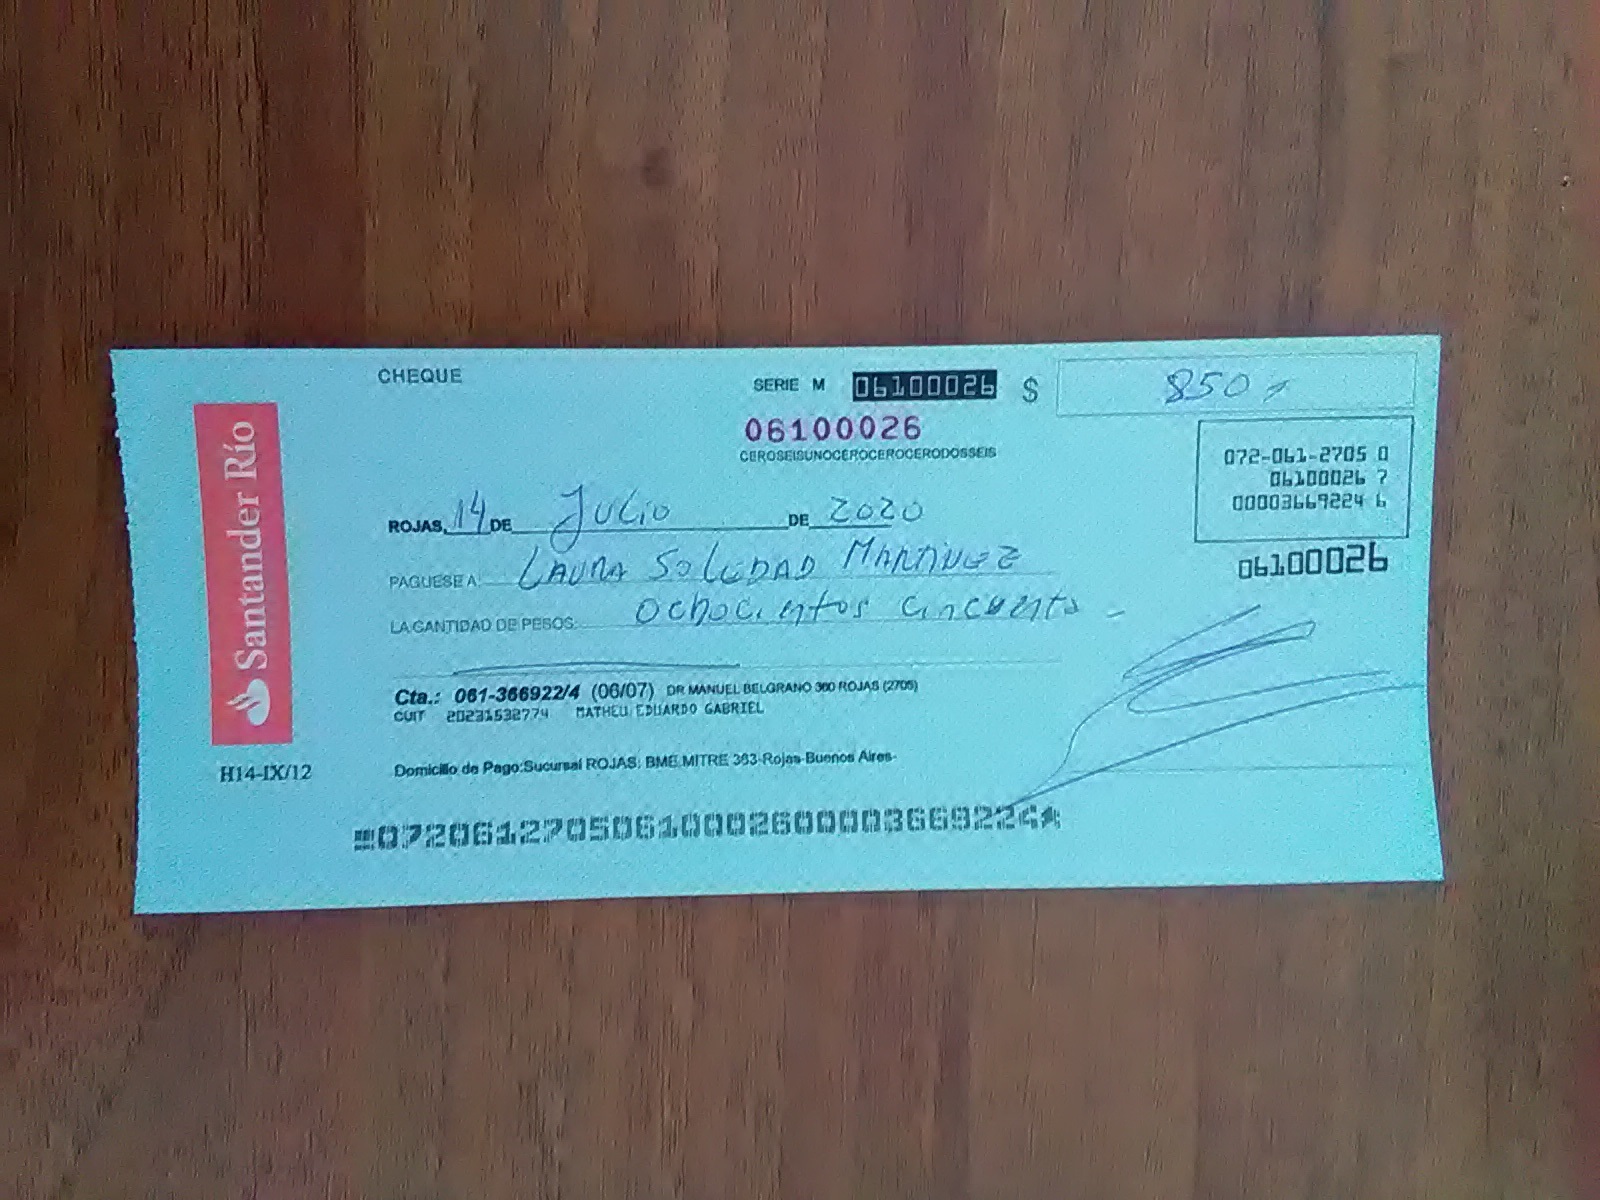 CHEQUE
SERIE M 06100026 $ 850
06100026
CEROSEISUNOCEROCEROCERODOSSEIS
072-061-2705 0
06100026 7
00003669224 6
06100026
ROJAS, 14 DE JULIO DE 2020
PAGUESE A: LAURA SOLEDAD MARTINEZ
LA CANTIDAD DE PESOS: Ochocientos cincuenta -
Cta.: 061-366922/4 (06/07) DR MANUEL BELGRANO 360 ROJAS (2705)
CUIT 20231532774 MATHEU EDUARDO GABRIEL
Domicilio de Pago:Sucursal ROJAS: BME MITRE 363-Rojas-Buenos Aires-
Santander Río
H14-IX/12
07206127050610002600003669224